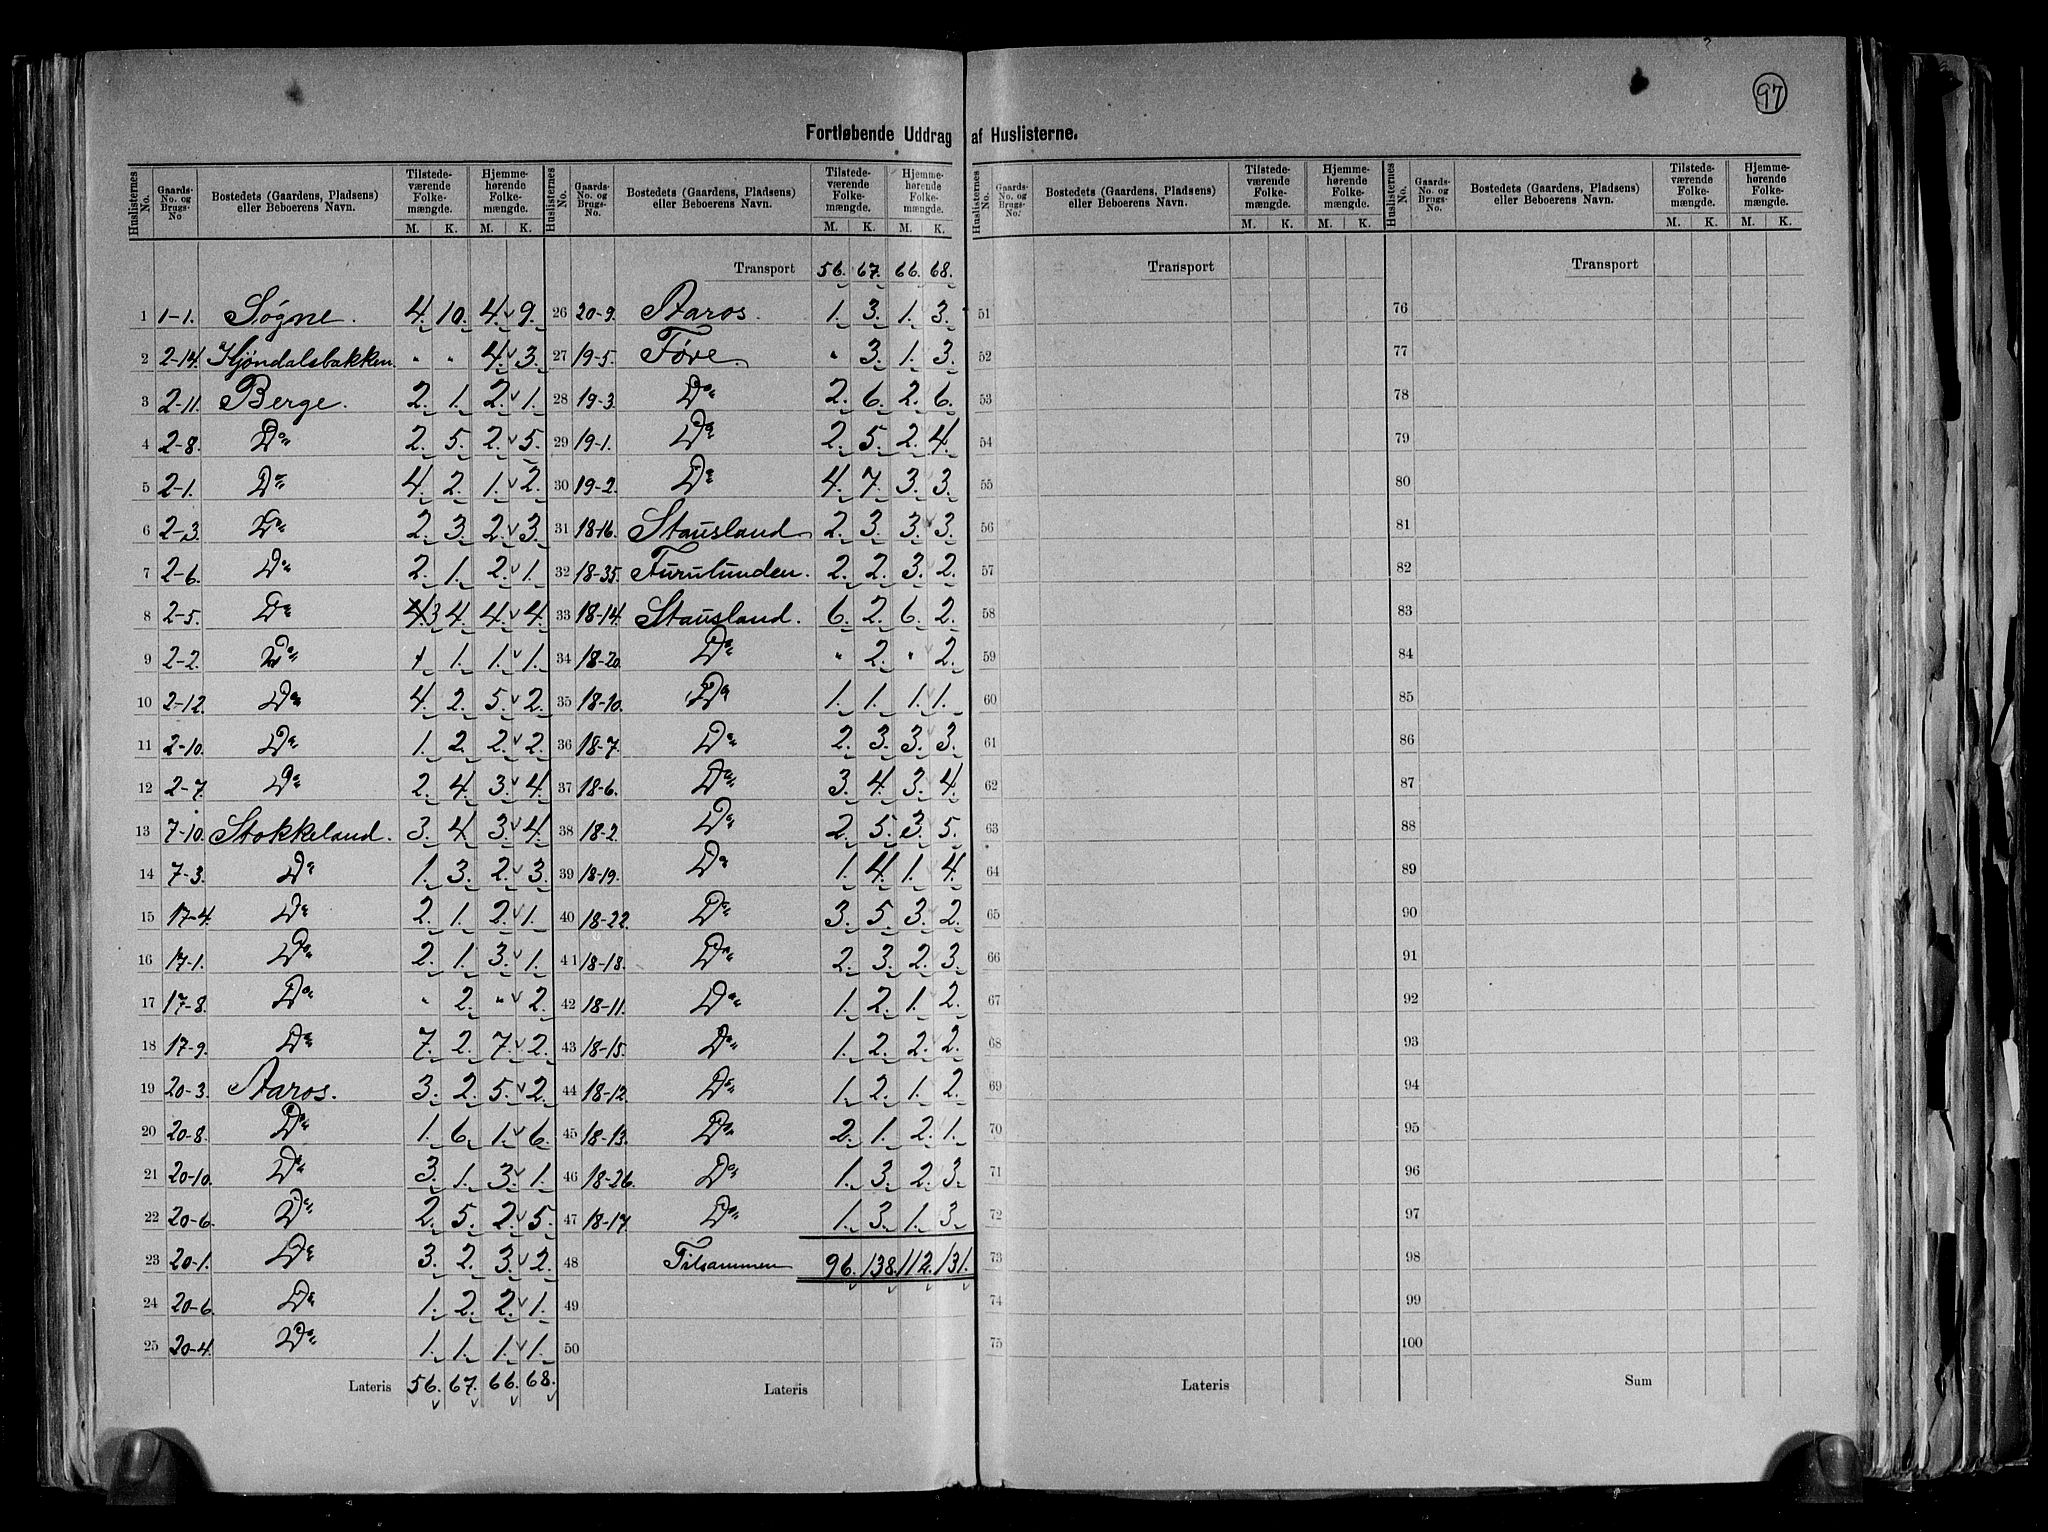 97
Fortløbende Uddrag af Huslisterne.
Huslisternes No. | Gaards-No. og Brugs-No | Bostedets (Gaardens, Pladsens) eller Beboerens Navn. | Tilstedeværende Folkemængde. M. K. | Hjemmehørende Folkemængde. M. K.
1 1-1. Søgne. 4. 10. 4. 9.
2 2-14. Kjøndalsbakken. " " 4. 3.
3 2-11. Berge. 2. 1. 2. 1.
4 2-8. Do 2. 5. 2. 5.
5 2-1. Do 4. 2. 1. 2.
6 2-3. Do 2. 3. 2. 3.
7 2-6. Do 2. 1. 2. 1.
8 2-5. Do 3 4. 4. 4.
9 2-2. Do 1. 1. 1.
10 2-12. Do 4. 2. 5. 2.
11 2-10. Do 1. 2. 2. 2.
12 2-7. Do 2. 4. 3. 4.
13 7-10. Stokkeland. 3. 4. 3. 4.
14 7-3. Do 1. 3. 2. 3.
15 17-4. Do 2. 1. 2. 1.
16 17-1. Do 2. 1. 3. 1.
17 17-8. Do " 2. " 2.
18 17-9. Do 7. 2. 7. 2.
19 20-3. Aaros. 3. 2. 5. 2.
20 20-8. Do 1. 6. 1. 6.
21 20-10. Do 3. 1. 3. 1.
22 20-6. Do 2. 5. 2. 5.
23 20-1. Do 3. 2. 3. 2.
24 20-6. Do 1. 2. 2. 1.
25 20-4. Do 1. 1. 1. 1.
Lateris 56. 67. 66. 68.
Huslisternes No. | Gaards-No. og Brugs-No. | Bostedets (Gaardens, Pladsens) eller Beboerens Navn. | Tilstedeværende Folkemængde. M. K. | Hjemmehørende Folkemængde. M. K.
Transport 56. 67. 66. 68.
26 20-9. Aaros. 1. 3. 1. 3.
27 19-5. Føve " 3. 1. 3.
28 19-3. Do 2. 6. 2. 6.
29 19-1. Do 2. 5. 2. 4.
30 19-2. Do 4. 7. 3. 3.
31 18-16. Stausland 2. 3. 3. 3.
32 18-35. Furulunden. 2. 2. 3. 2.
33 18-14. Stausland. 6. 2. 6. 2.
34 18-20. Do " 2. " 2.
35 18-10. Do 1. 1. 1. 1.
36 18-7. Do 2. 3. 3. 3.
37 18-6. Do 3. 4. 3. 4.
38 18-2. Do 2. 5. 3. 5.
39 18-19. Do 1. 4. 1. 4.
40 18-22. Do 3. 5. 3. 2.
41 18-18. Do 2. 3. 2. 3.
42 18-11. Do 1. 2. 1. 2.
43 18-15. Do 1. 2. 2. 2.
44 18-12. Do 1. 2. 1. 2.
45 18-13. Do 2. 1. 2. 1.
46 18-26. Do 1. 3. 2. 3.
47 18-17. Do 1. 3. 1. 3.
48 Tilsammen 96. 138. 112. 131.
49
50
Lateris
Huslisternes No. | Gaards-No. og Brugs-No. | Bostedets (Gaardens, Pladsens) eller Beboerens Navn. | Tilstedeværende Folkemængde. M. K. | Hjemmehørende Folkemængde. M. K.
Transport
51
52
53
54
55
56
57
58
59
60
61
62
63
64
65
66
67
68
69
70
71
72
73
74
75
Lateris
Huslisternes No. | Gaards-No. og Brugs-No. | Bostedets (Gaardens, Pladsens) eller Beboerens Navn. | Tilstedeværende Folkemængde. M. K. | Hjemmehørende Folkemængde. M. K.
Transport
76
77
78
79
80
81
82
83
84
85
86
87
88
89
90
91
92
93
94
95
96
97
98
99
100
Sum